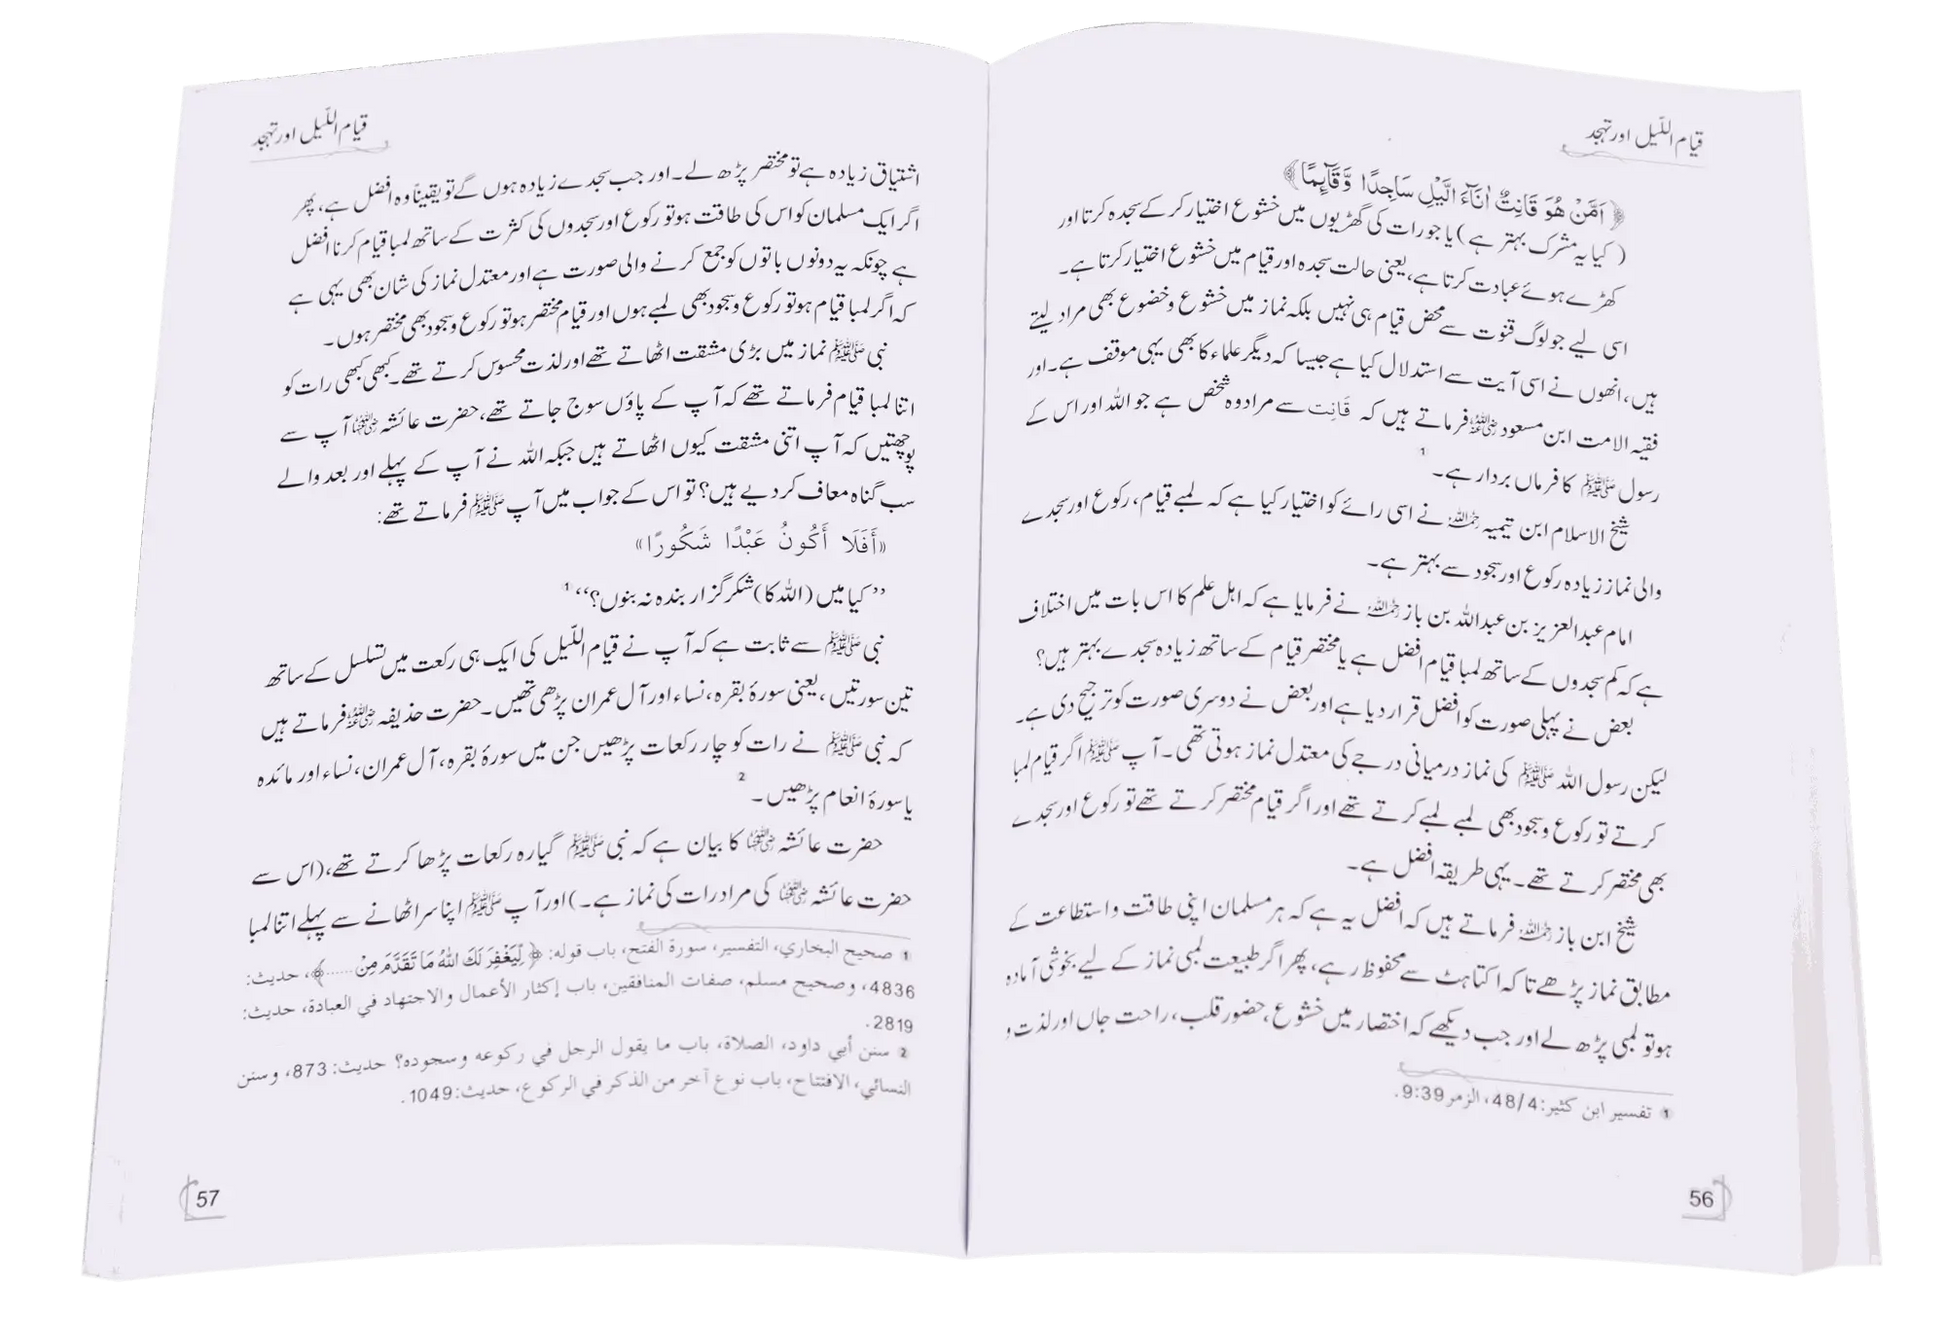 قیام اللّیل اور تہجد
﴿ اَمَّنْ هُوَ قَانِتٌ اٰنَآءَ الَّيْلِ سَاجِدًا وَّقَآئِمًا﴾
( کیا یہ مشرک بہتر ہے) یا جو رات کی گھڑیوں میں خشوع اختیار کر کے سجدہ کرتا اور
کھڑے ہوئے عبادت کرتا ہے، یعنی حالت سجدہ اور قیام میں خشوع اختیار کرتا ہے۔
اسی لیے جو لوگ قنوت سے محض قیام ہی نہیں بلکہ نماز میں خشوع و خضوع بھی مراد لیتے
ہیں، انھوں نے اسی آیت سے استدلال کیا ہے جیسا کہ دیگر علماء کا بھی یہی موقف ہے۔ اور
فقیہ الامت ابن مسعود رضی اللہ عنہ فرماتے ہیں کہ قَانِت سے مراد وہ شخص ہے جو اللہ اور اس کے
رسول ﷺ کا فرماں بردار ہے۔ 1
شیخ الاسلام ابن تیمیہ رحمہ اللہ نے اسی رائے کو اختیار کیا ہے کہ لمبے قیام، رکوع اور سجدے
والی نماز زیادہ رکوع اور سجود سے بہتر ہے۔
امام عبدالعزیز بن عبداللہ بن باز رحمہ اللہ نے فرمایا ہے کہ اہل علم کا اس بات میں اختلاف
ہے کہ کم سجدوں کے ساتھ لمبا قیام افضل ہے یا مختصر قیام کے ساتھ زیادہ سجدے بہتر ہیں؟
بعض نے پہلی صورت کو افضل قرار دیا ہے اور بعض نے دوسری صورت کو ترجیح دی ہے۔
لیکن رسول اللہ ﷺ کی نماز درمیانی درجے کی معتدل نماز ہوتی تھی۔ آپ ﷺ اگر قیام لمبا
کرتے تو رکوع و سجود بھی لمبے لمبے کرتے تھے اور اگر قیام مختصر کرتے تھے تو رکوع اور سجدے
بھی مختصر کرتے تھے۔ یہی طریقہ افضل ہے۔
شیخ ابن باز رحمہ اللہ فرماتے ہیں کہ افضل یہ ہے کہ ہر مسلمان اپنی طاقت و استطاعت کے
مطابق نماز پڑھے تا کہ اکتاہٹ سے محفوظ رہے، پھر اگر طبیعت لمبی نماز کے لیے بخوشی آمادہ
ہو تو لمبی پڑھ لے اور جب دیکھے کہ اختصار میں خشوع، حضور قلب، راحت جاں اور لذت و
1 تفسير ابن كثير: 48/4، الزمر 9:39.
56
قیام اللّیل اور تہجد
اشتیاق زیادہ ہے تو مختصر پڑھ لے۔ اور جب سجدے زیادہ ہوں گے تو یقیناً وہ افضل ہے، پھر
اگر ایک مسلمان کو اس کی طاقت ہو تو رکوع اور سجدوں کی کثرت کے ساتھ لمبا قیام کرنا افضل
ہے چونکہ یہ دونوں باتوں کو جمع کرنے والی صورت ہے اور معتدل نماز کی شان بھی یہی ہے
کہ اگر لمبا قیام ہو تو رکوع و سجود بھی لمبے ہوں اور قیام مختصر ہو تو رکوع و سجود بھی مختصر ہوں۔
نبی ﷺ نماز میں بڑی مشقت اٹھاتے تھے اور لذت محسوس کرتے تھے۔ کبھی کبھی رات کو
اتنا لمبا قیام فرماتے تھے کہ آپ کے پاؤں سوج جاتے تھے، حضرت عائشہ رضی اللہ عنہا آپ سے
پوچھتیں کہ آپ اتنی مشقت کیوں اٹھاتے ہیں جبکہ اللہ نے آپ کے پہلے اور بعد والے
سب گناہ معاف کر دیے ہیں؟ تو اس کے جواب میں آپ ﷺ فرماتے تھے:
«أَفَلَا أَكُونُ عَبْدًا شَكُورًا»
’’ کیا میں (اللہ کا) شکر گزار بندہ نہ بنوں؟‘‘ 1
نبی ﷺ سے ثابت ہے کہ آپ نے قیام اللّیل کی ایک ہی رکعت میں تسلسل کے ساتھ
تین سورتیں، یعنی سورۂ بقرہ، نساء اور آل عمران پڑھی تھیں۔ حضرت حذیفہ رضی اللہ عنہ فرماتے ہیں
کہ نبی ﷺ نے رات کو چار رکعات پڑھیں جن میں سورۂ بقرہ، آل عمران، نساء اور مائدہ
یا سورۂ انعام پڑھیں۔ 2
حضرت عائشہ رضی اللہ عنہا کا بیان ہے کہ نبی ﷺ گیارہ رکعات پڑھا کرتے تھے، (اس سے
حضرت عائشہ رضی اللہ عنہا کی مراد رات کی نماز ہے۔) اور آپ ﷺ اپنا سر اٹھانے سے پہلے اتنا لمبا
1 صحيح البخاري، التفسير، سورة الفتح، باب قوله: ﴿ لِّيَغْفِرَ لَكَ اللّٰهُ مَا تَقَدَّمَ مِنْ ......﴾، حديث:
4836، وصحيح مسلم، صفات المنافقين، باب إكثار الأعمال والاجتهاد في العبادة، حديث:
2819.
2 سنن أبي داود، الصلاة، باب ما يقول الرجل في ركوعه وسجوده؟ حديث: 873، وسنن
النسائي، الافتتاح، باب نوع آخر من الذكر في الركوع، حديث: 1049.
57